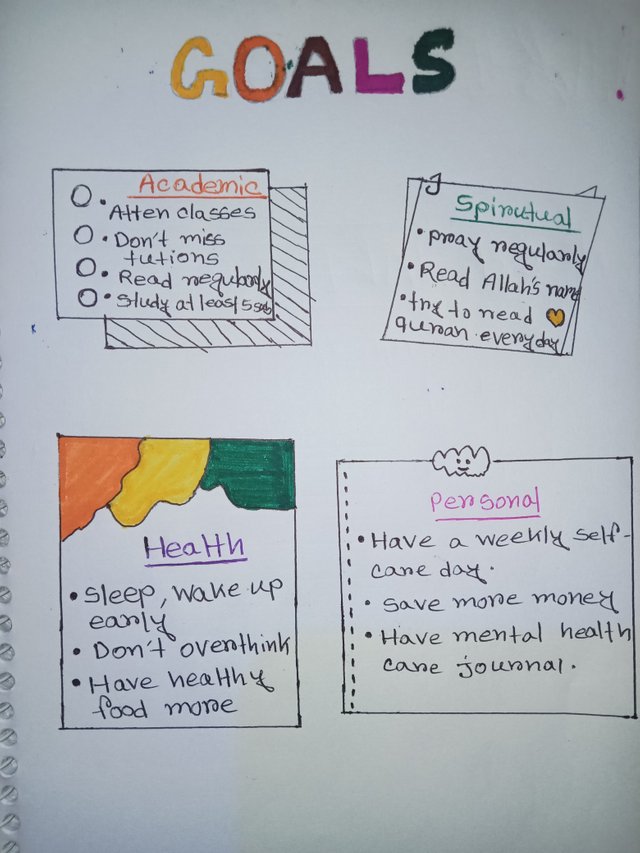 GOALS
Academic
• Atten classes
• Don't miss
tutions
• Read regularly
• Study at least 5
Spirutual
• pray regularly
• Read Allah's name
• try to read
quran everyday
Health
• Sleep, wake up
early
• Don't overthink
• Have healthy
food more
Personal
• Have a weekly self-
care day.
• save more money
• Have mental health
care journal.